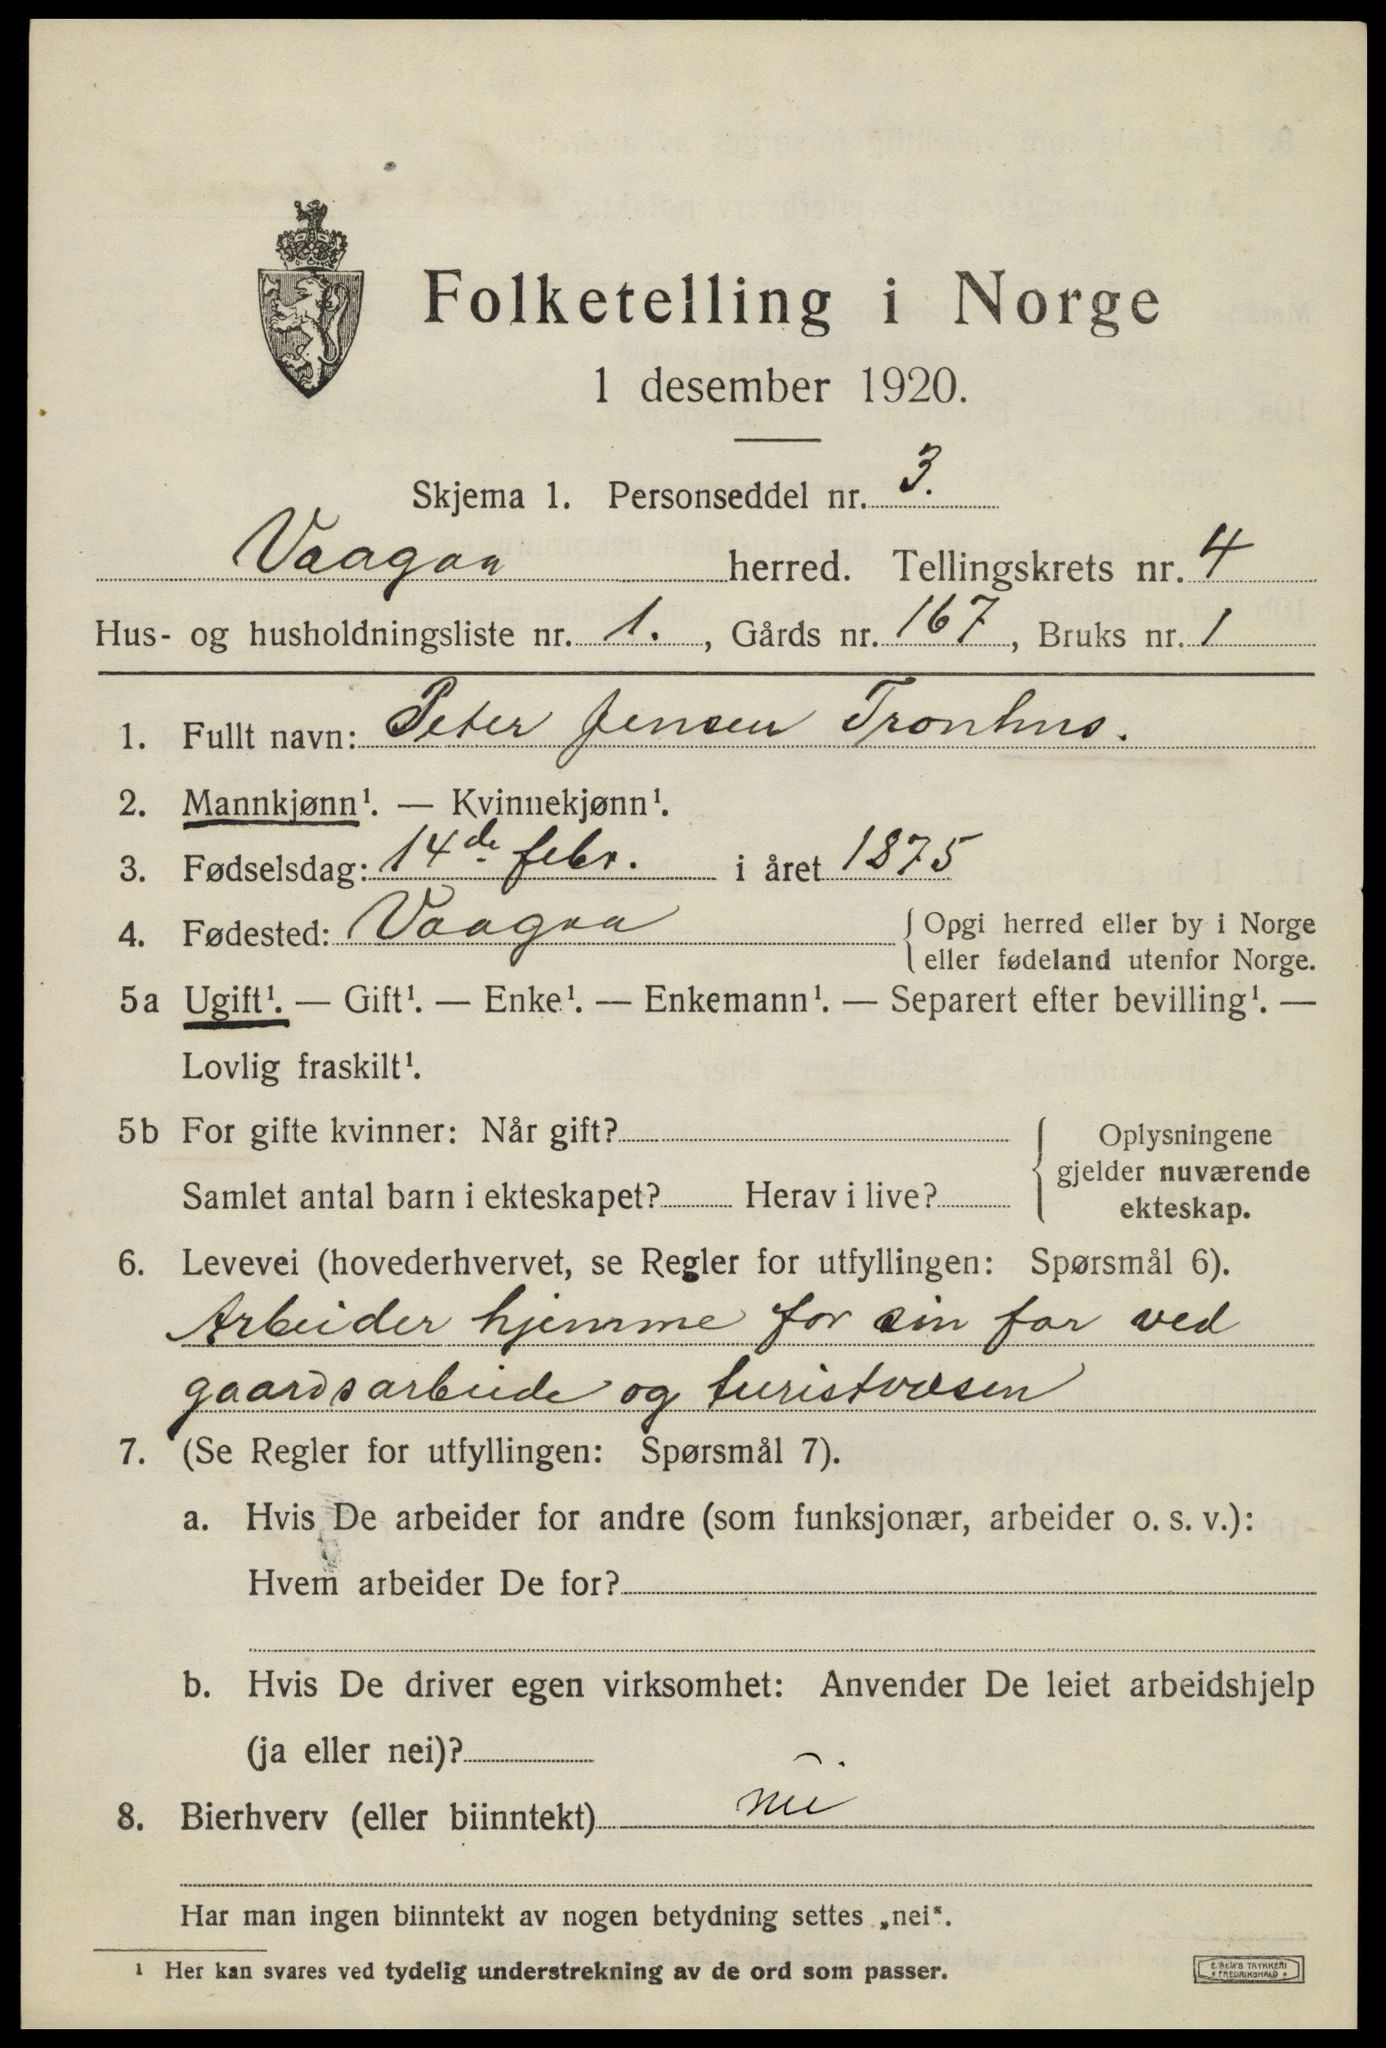 Folketelling i Norge
1 desember 1920.
Skjema 1. Personseddel nr. 3.
Vaagaa herred. Tellingskrets nr. 4
Hus- og husholdningsliste nr. 1., Gårds nr. 167, Bruks nr. 1
1. Fullt navn: Peter Jensen Tronhus.
2. Mannkjønn¹. — Kvinnekjønn¹.
3. Fødselsdag: 14de febr. i året 1875
4. Fødested: Vaagaa { Opgi herred eller by i Norge
eller fødeland utenfor Norge.
5a Ugift¹. — Gift¹. — Enke¹. — Enkemann¹. — Separert efter bevilling¹. —
Lovlig fraskilt¹.
5b For gifte kvinner: Når gift? { Oplysningene
gjelder nuværende
Samlet antal barn i ekteskapet? Herav i live? ekteskap.
6. Levevei (hovederhvervet, se Regler for utfyllingen: Spørsmål 6).
Arbeider hjemme for sin far ved
gaardsarbeide og turistvæsen
7. (Se Regler for utfyllingen: Spørsmål 7).
a. Hvis De arbeider for andre (som funksjonær, arbeider o. s. v.):
Hvem arbeider De for?
b. Hvis De driver egen virksomhet: Anvender De leiet arbeidshjelp
(ja eller nei)?
8. Bierhverv (eller biinntekt) nei
Har man ingen biinntekt av nogen betydning settes „nei".
¹ Her kan svares ved tydelig understrekning av de ord som passer.
E. SEM'S TRYKKERI
FREDRIKSHALD